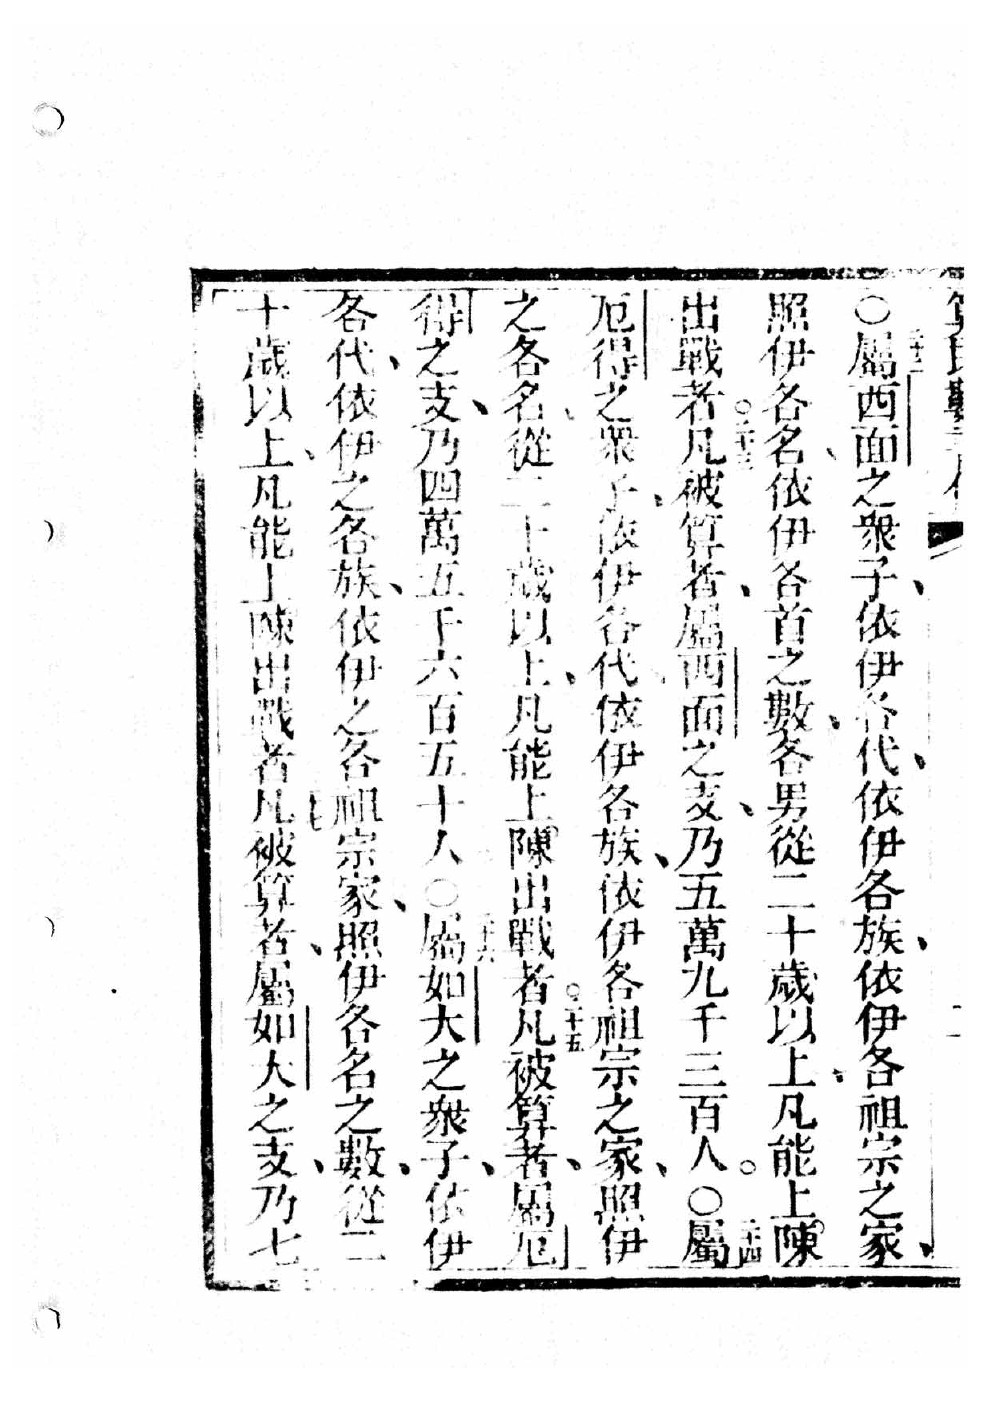 算民數
○屬西面之衆子、依伊各代、依伊各族、依伊各祖宗之家、
照伊各名、依伊各首之數、各男從二十歲以上、凡能上陳
出戰者○二十三凡被算者、屬西面之支、乃五萬九千三百人。○二十四屬
厄得之衆子、依伊各代、依伊各族、依伊各祖宗之家、照伊
之各名、從二十歲以上、凡能上陳出戰者○二十五凡被算者、屬厄
得之支、乃四萬五千六百五十人○二十六屬如大之衆子、依伊
各代、依伊之各族、依伊之各祖宗家、照伊各名之數、從二
十歲以上、凡能上陳出戰者凡被算者、屬如大之支、乃七